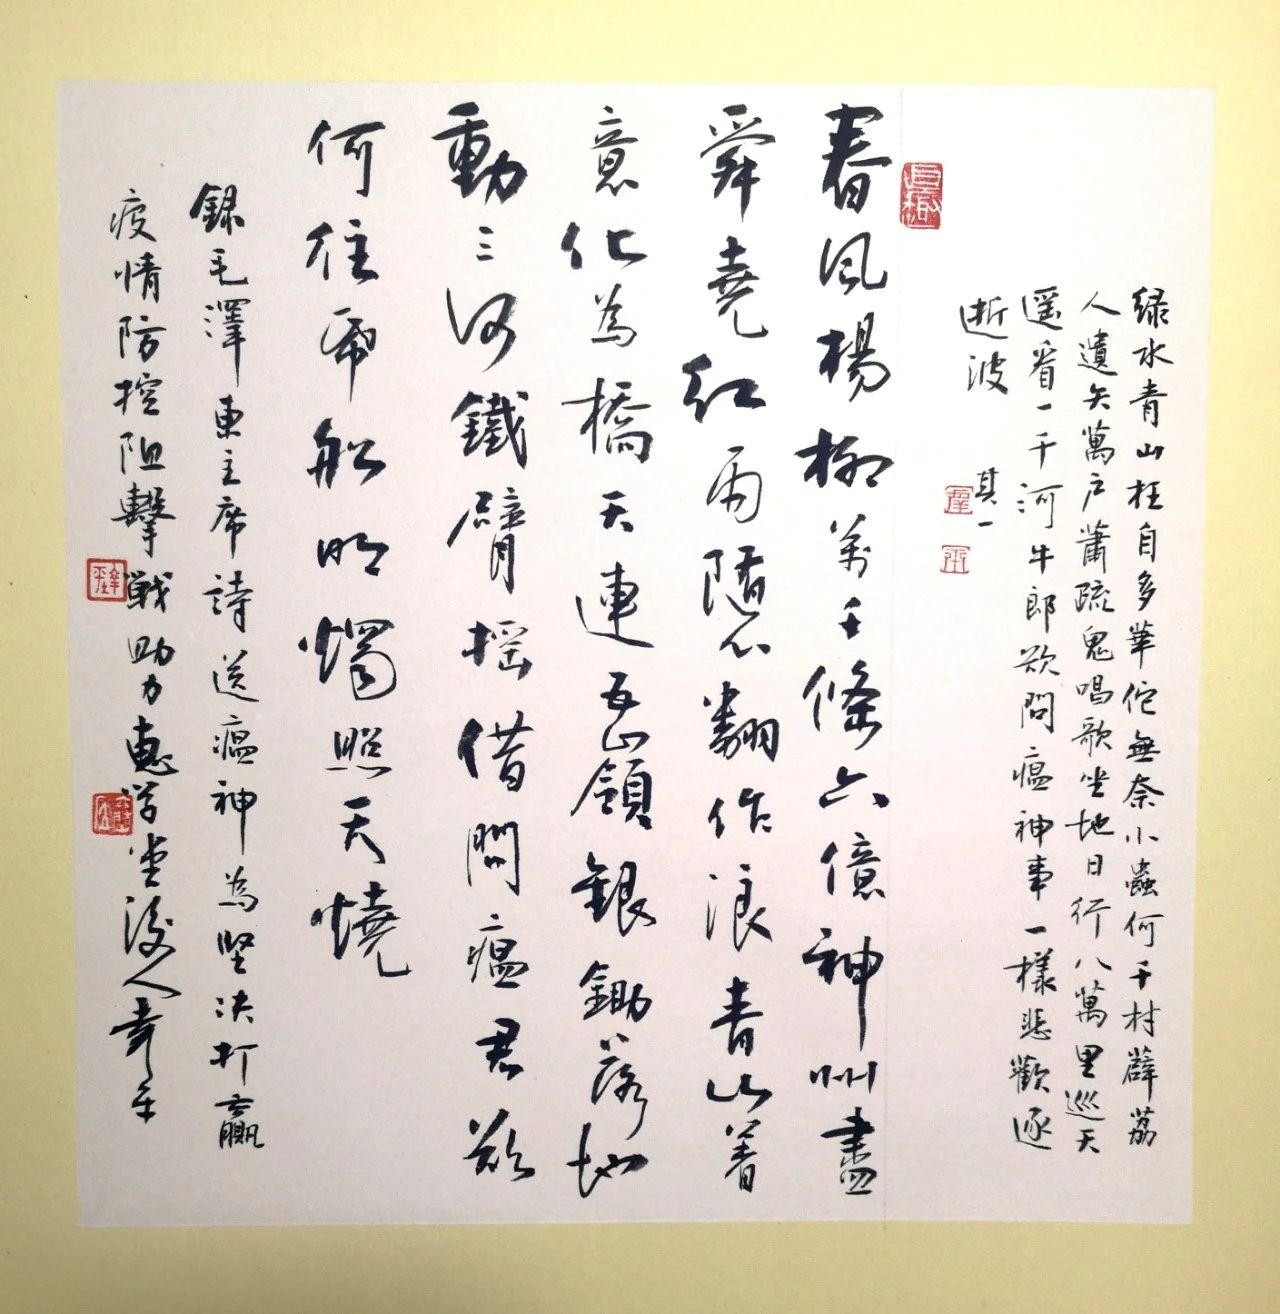 绿水青山枉自多華佗無奈小蟲何千村薜荔
人遺矢萬户蕭疏鬼唱歌坐地日行八萬里巡天
遥看一千河牛郎欲問瘟神事一樣悲歡逐
逝波 其一
春風楊柳萬千條六億神州盡
舜堯紅雨隨心翻作浪青山著
意化為橋天連五嶺銀鋤落地
動三河鐵臂摇借問瘟君欲
何往㡭船明燭照天燒
録毛澤東主席詩送瘟神為堅决打贏
疫情防控阻擊戦助力惠学堂後人